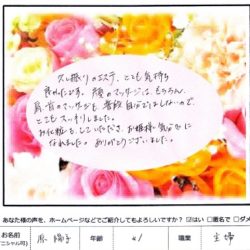 久し振りのエステ、とても気持ち
良かったです。顔のマッサージは、もちろん、
肩、首のマッサージも普段自分ではしないので、
とてもスッキリしました。
お化粧もしていただき、お姫様気分に
なれました。ありがとうございました。
あなた様の声を、ホームページなどでご紹介してもよろしいですか？ はい □匿名で □ダメ
お名前 原 陽子 年齢 41 職業 主婦
ニシャル可)